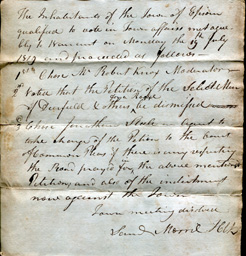 The Inhabitants of the Town of Epsom
qualified to vote in Town affairs met agree
bly to Warrant on Monday the July
and proceeded as follows
1st Chose Mr Robert Knox Moderator
2 voted that the Petition of the Selectmen
of Deerfield & others be dismissed
3 Chose Jonathan agent to
take charge of the Petition to the Court
of Common Pleas if there is any respecting
the Road prayed for the above mentioned
Petition and also of the indictment
now against the Town
Town meeting dissolved
Morril